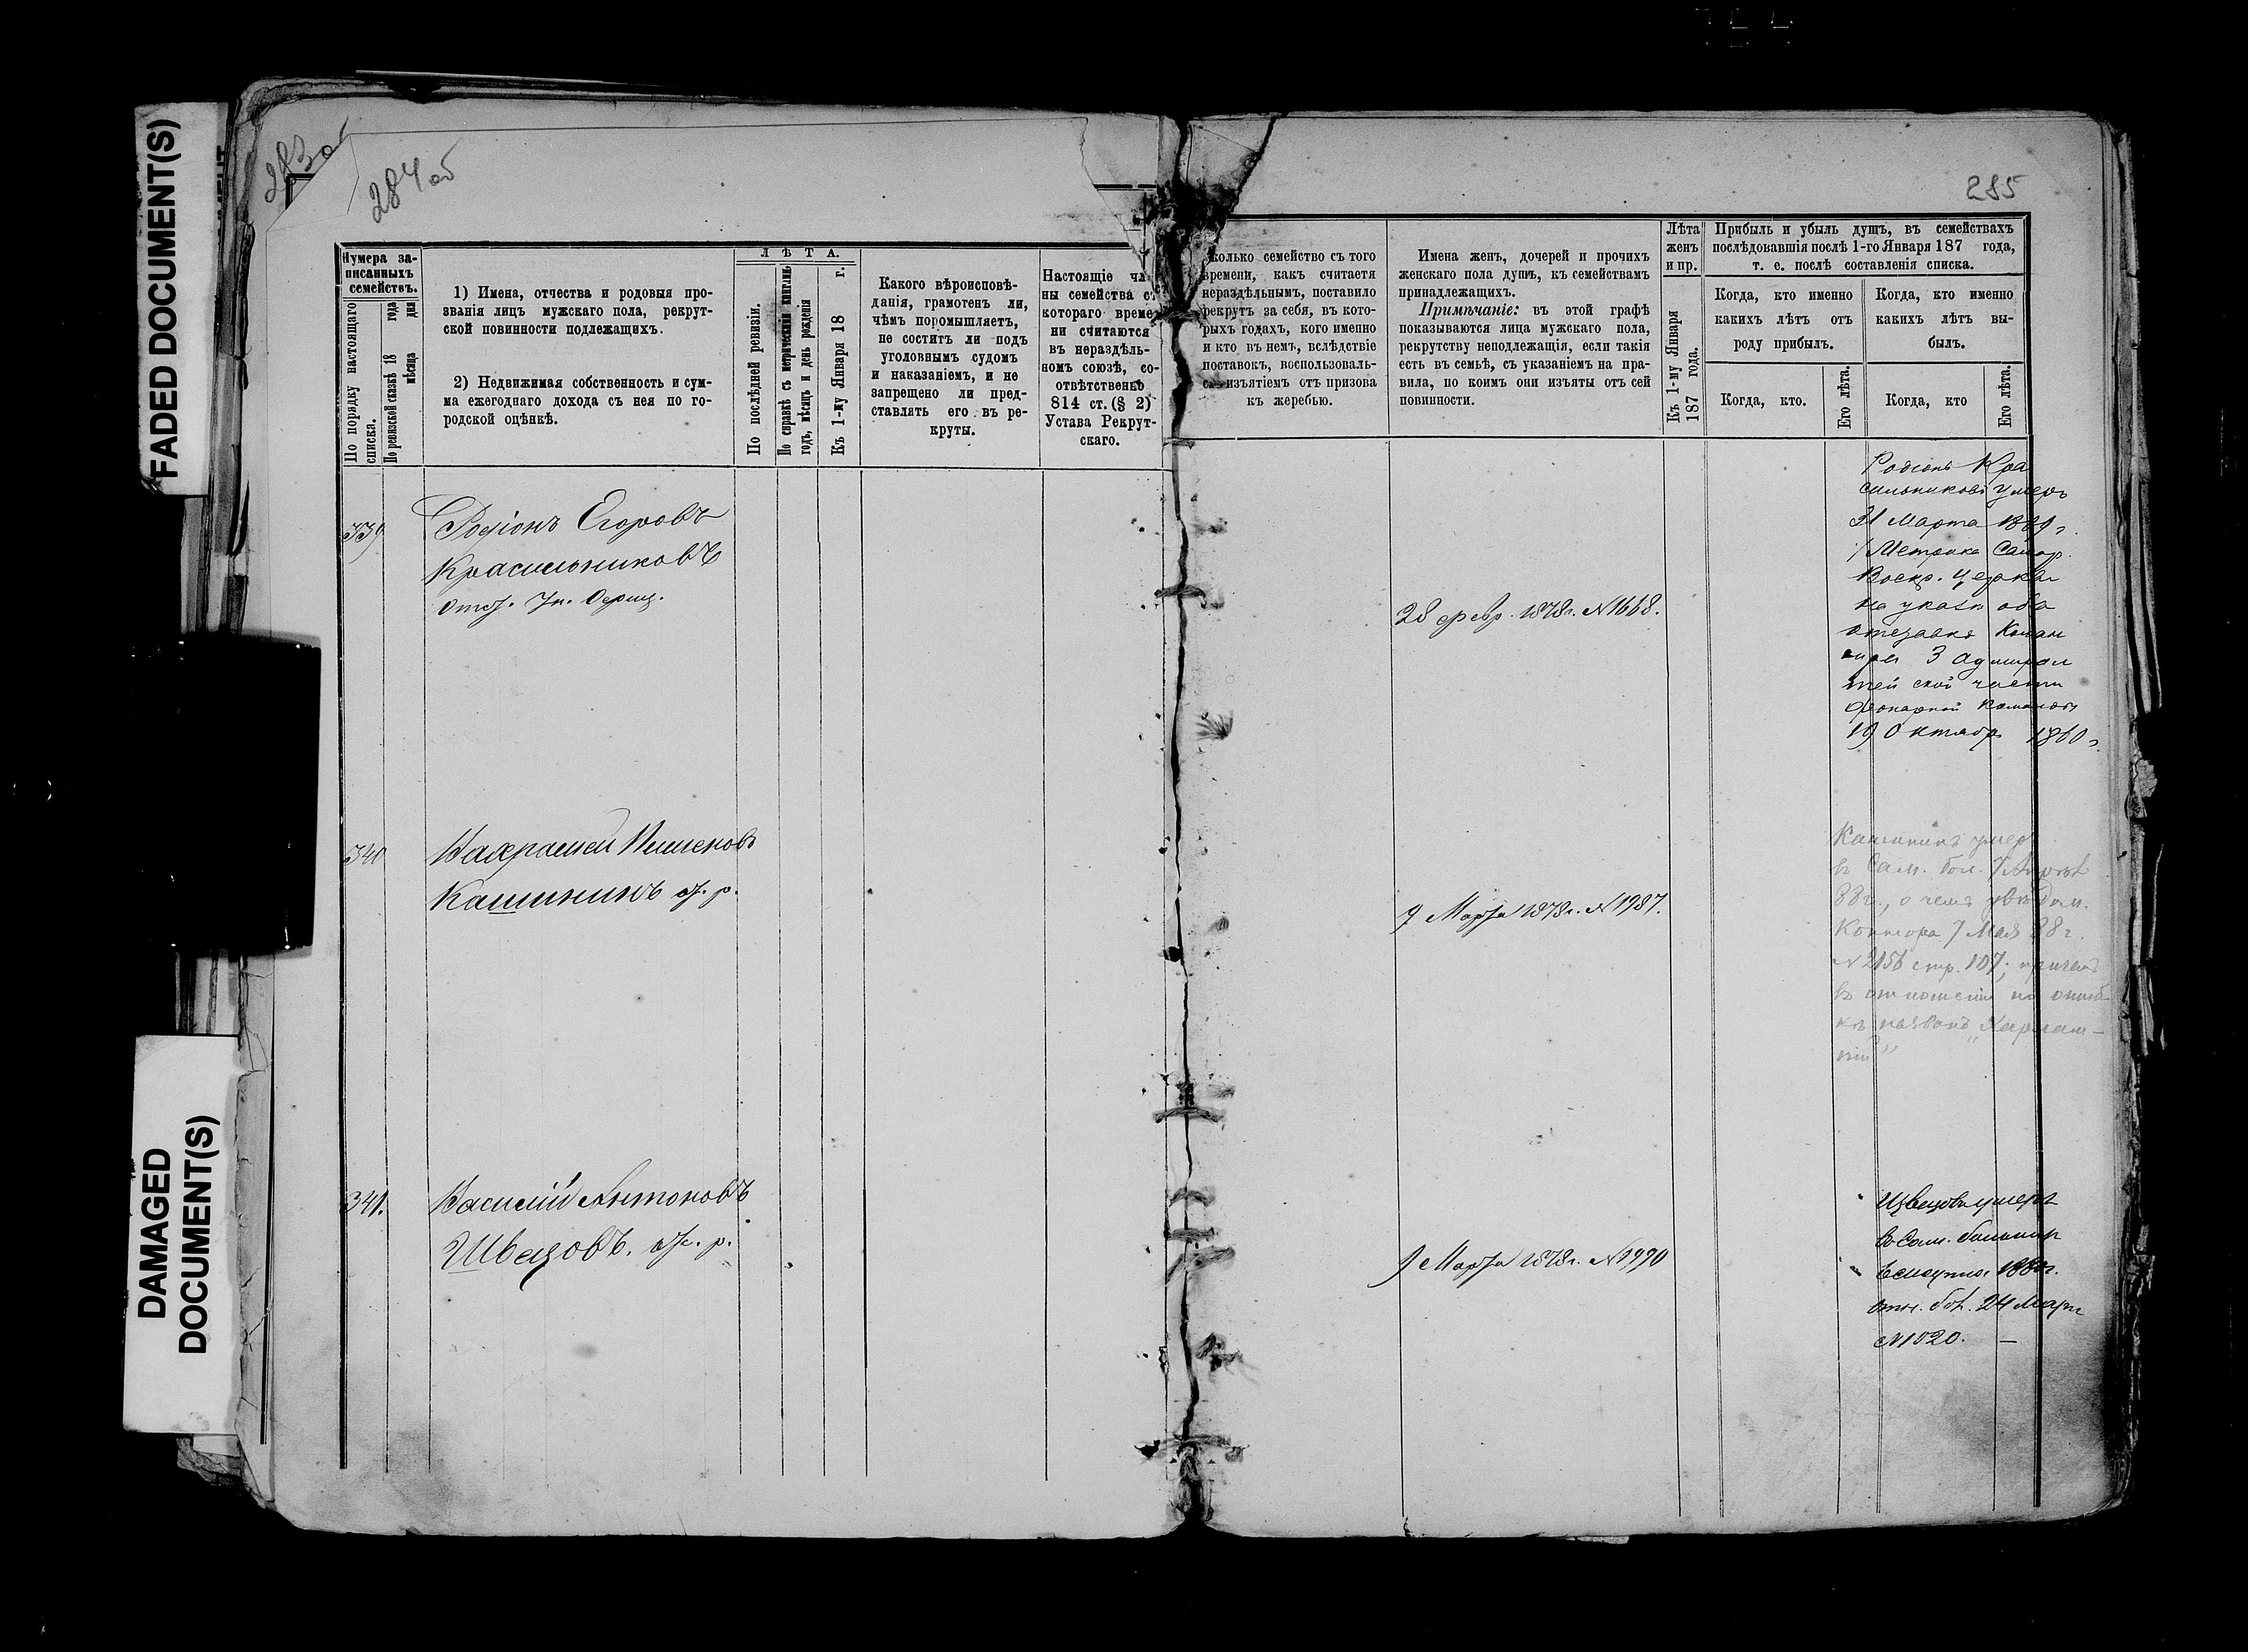 FADED DOCUMENT(S)
DAMAGED
DOCUMENT(S)
283об
284об
285
Нумера за-
писанныхъ
семействъ.
По порядку настоящаго
списка.
По ревизской сказкѣ 18 года
мѣсяца дня
1) Имена, отчества и родовыя про-
званія лицъ мужскаго пола, рекрут-
ской повинности подлежащихъ.
2) Недвижимая собственность и сум-
ма ежегоднаго дохода съ нея по го-
родской оцѣнкѣ.
ЛѢТА.
По послѣдней ревизіи.
По справкѣ съ метрическими книгами
годъ, мѣсяцъ и день рожденія
Къ 1-му Января 18 г.
Какого вѣроисповѣ-
данія, грамотенъ ли,
чѣмъ промышляетъ,
не соститъ ли подъ
уголовнымъ судомъ
и наказаніемъ, и не
запрещено ли пред-
ставлять его въ ре-
круты.
Настоящіе чле-
ны семейства съ
котораго време-
ни считаются
въ нераздѣль-
номъ союзѣ, со-
отвѣтственно
814 ст. (§ 2)
Устава Рекрут-
скаго.
колько семейство съ того
времени, какъ считаетя
нераздѣльнымъ, поставило
рекрутъ за себя, въ кото-
рыхъ годахъ, кого именно
и кто въ немъ, вслѣдствіе
поставокъ, воспользоваль-
ся изъятіемъ отъ призова
къ жеребью.
Имена женъ, дочерей и прочихъ
женскаго пола душъ, къ семействамъ
принадлежащихъ.
Примѣчаніе: въ этой графѣ
показываются лица мужскаго пола,
рекрутству неподлежащія, если такія
есть въ семьѣ, съ указаніемъ на пра-
вила, по коимъ они изъяты отъ сей
повинности.
Лѣта
женъ
и пр.
Къ 1-му Января
187 года.
Прибыль и убыль душъ, въ семействахъ
послѣдовавшія послѣ 1-го Января 187 года,
т. е. послѣ составленія списка.
Когда, кто именно
какихъ лѣтъ отъ
роду прибылъ.
Когда, кто именно
какихъ лѣтъ вы-
былъ.
Когда, кто.
Его лѣта.
Когда, кто
Его лѣта.
339
Родіонъ Егоровъ
Красильниковъ
28 февр. 1878г. №1668.
Родіонъ Кра
сильниковъ умеръ
31 Марта 1889г.
Метрика Самар.
Воскр. Церкви
на указъ объ
отставкѣ Коман
дира 3 Адмирал
тейской части
фонарной команды
19 Октябр 1860г.
340
Вахрамей
Кашининъ от. р.
9 Марта 1878г. №1987.
Кашининъ умеръ
въ Сам. бол. 7 Апрѣл
88г., о чемъ увѣдом.
Контора 7 Мая 88г.
№2156 стр. 107; причемъ
въ отношеніи по ошиб-
кѣ названъ
341.
Василій Антоновъ
Швецовъ. от. р.
9 Марта 1878г. №1990
Швецовъ умеръ
въ Сам. больницѣ
отн. 24 Март
№1020. —